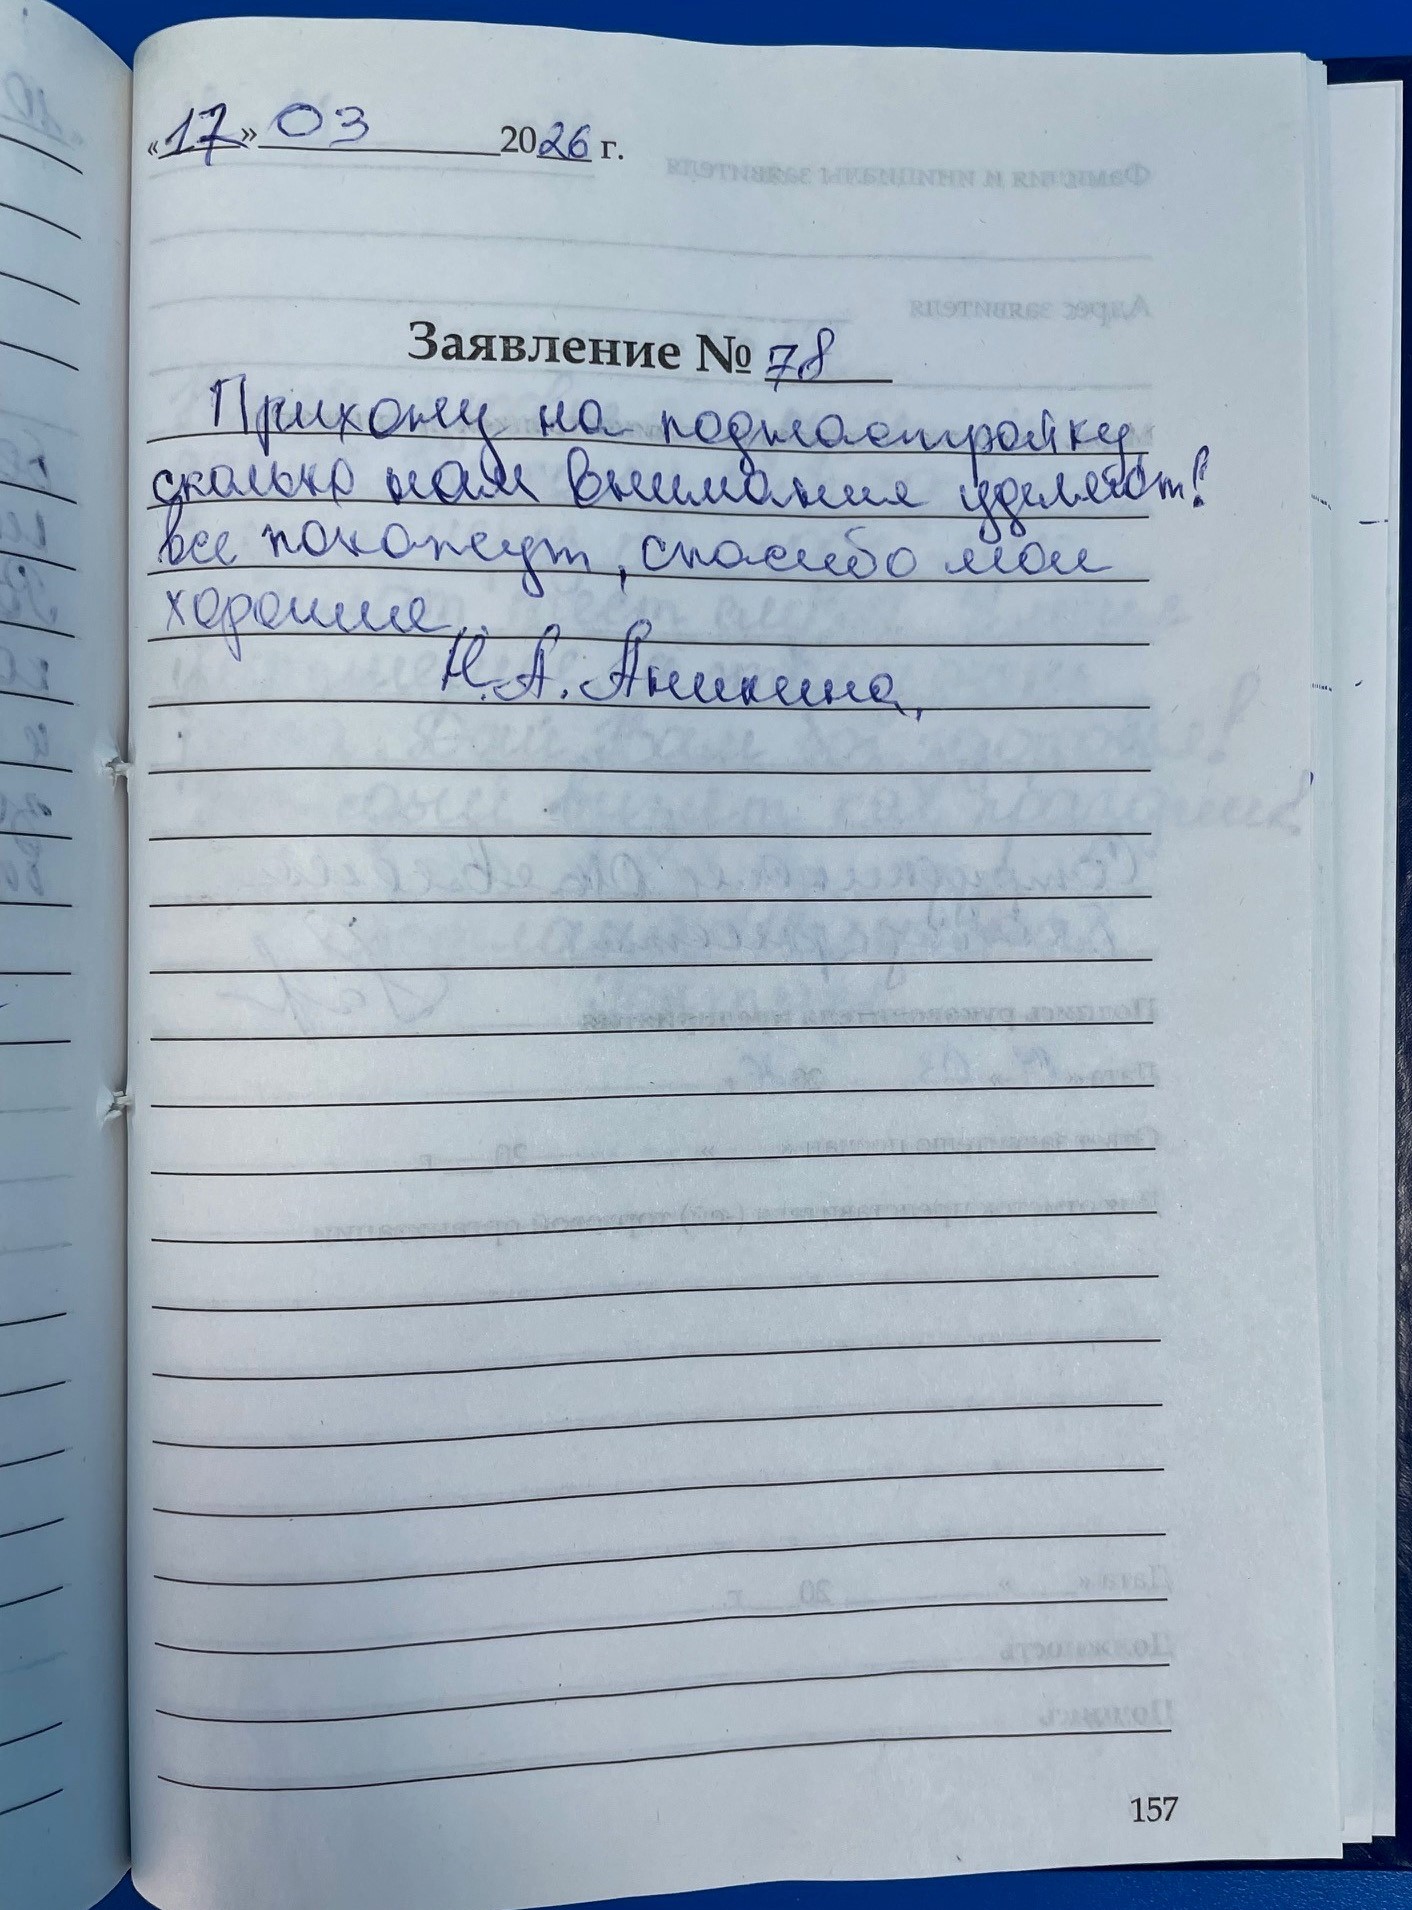 «17» 03 2026 г.
Заявление № 78
Прихожу на поднастройку
сколько нам внимания уделяют!
все покажут, спасибо мои
хорошие.
Н.А. Аникина,
157